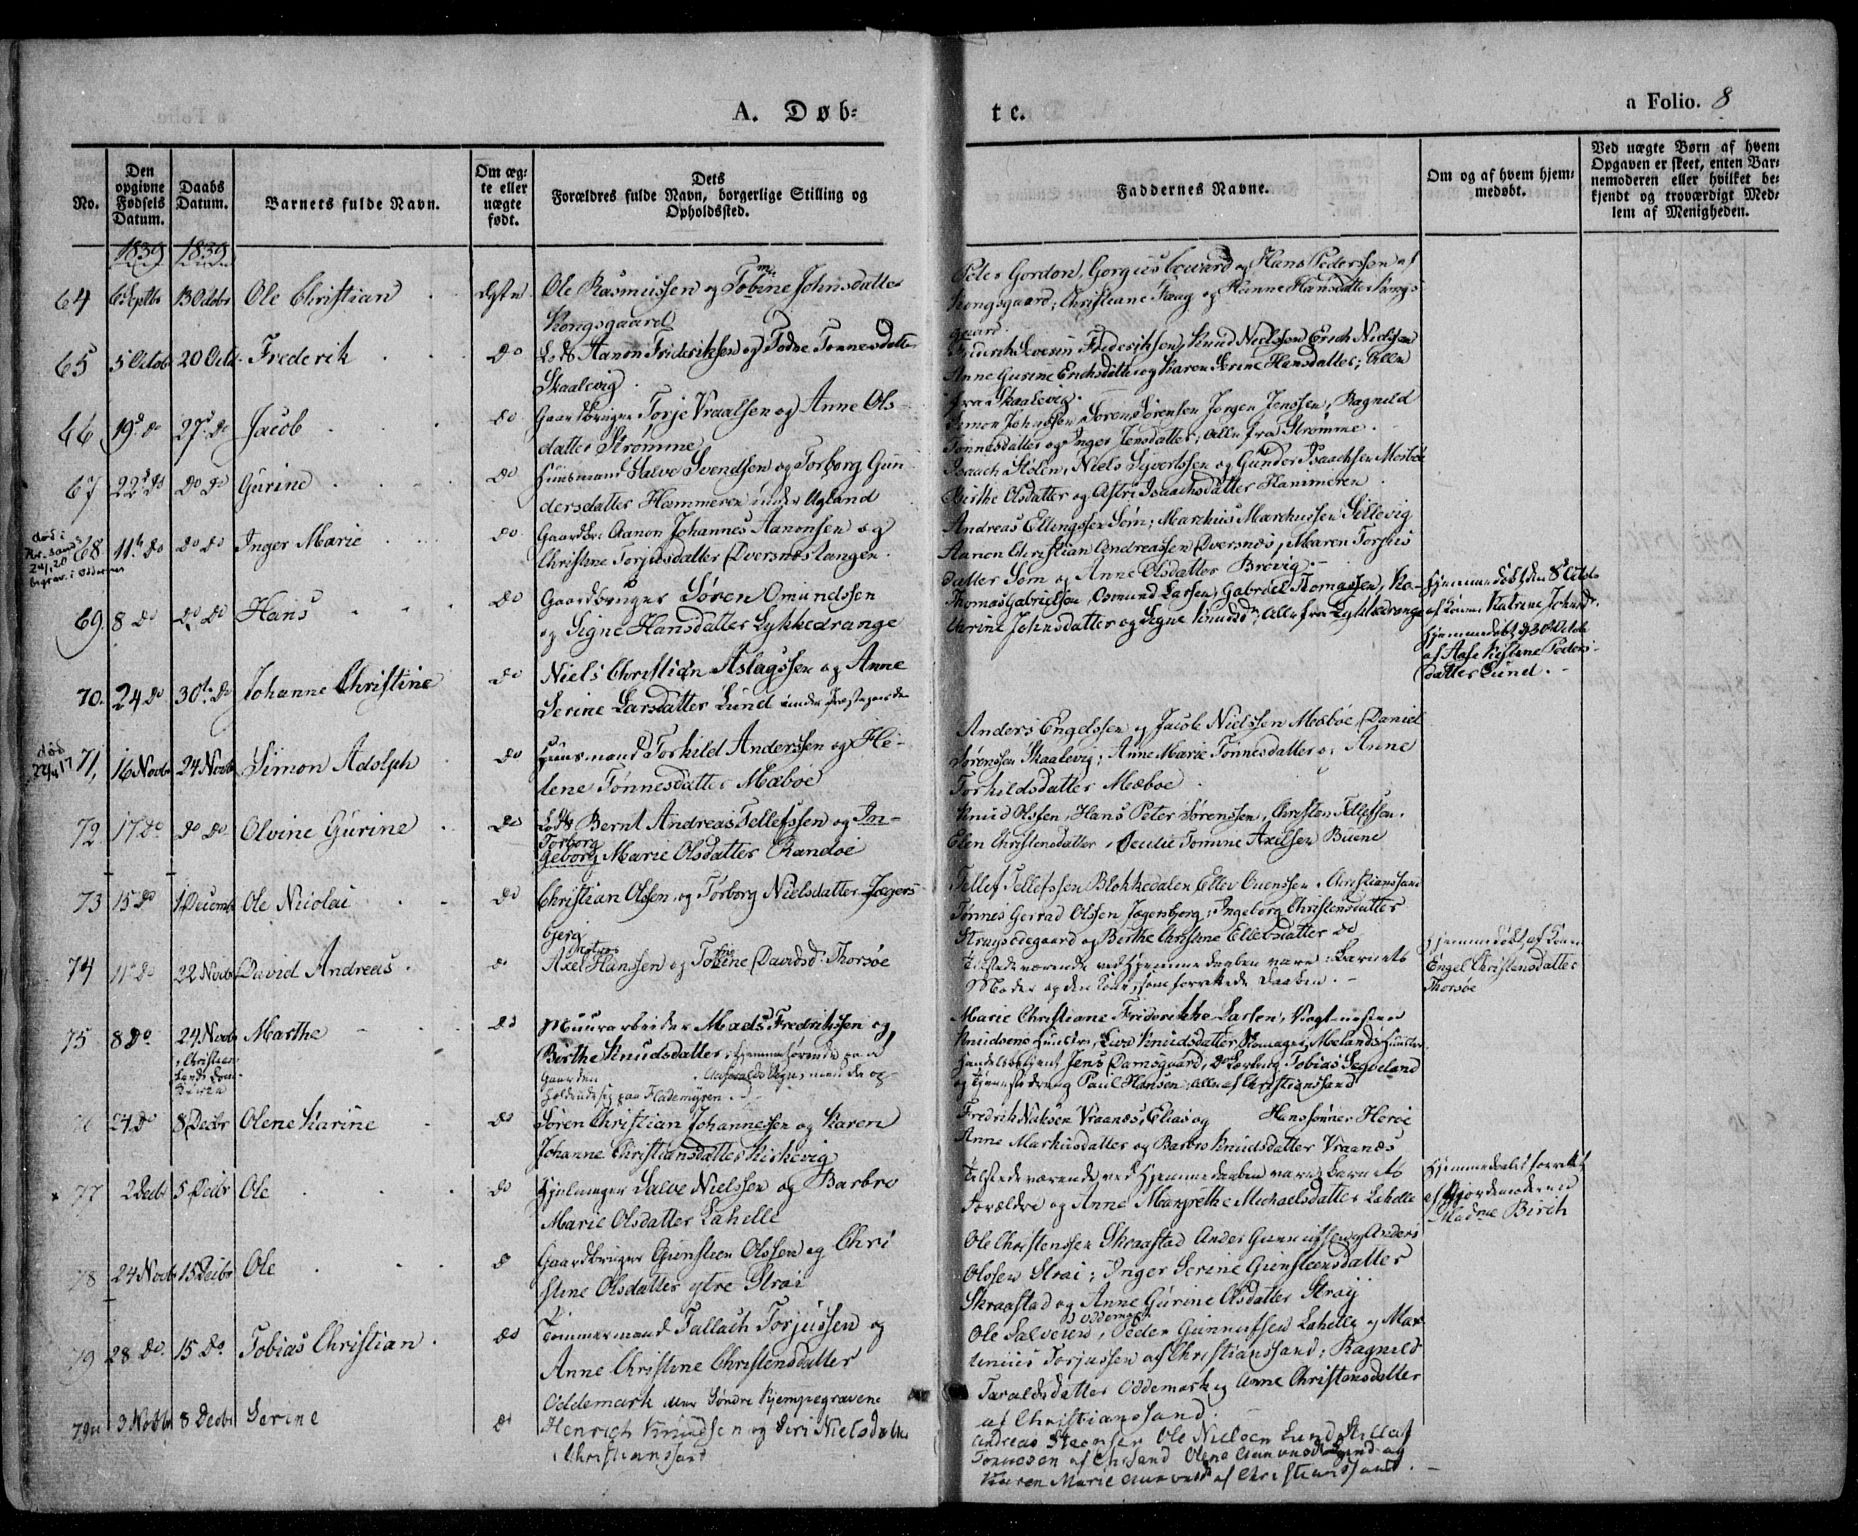 A. Døb-
te.
a Folio. 8
No.
Den opgivne Fødsels Datum.
Daabs Datum.
Barnets fulde Navn.
Om ægte eller uægte født.
Dets Forældres fulde Navn, borgerlige Stilling og Opholdssted.
Faddernes Navne.
Om og af hvem hjemmedøbt.
Ved uægte Børn af hvem Opgaven er skeet, enten Barnemoderen eller hvilket bekjendt og troværdigt Medlem af Menigheden.
1839 1839
64 6 Septbr 13 Octobr Ole Christian Ægte
Ole Rasmussen og Tobine Johnsdatter
Kongsgaard
Peter Gordon, Gorgius Coward og Hans Pederssen af
Kongsgaard; Christiane Faag og Hanne Hansdatter Kongs-
gaard
65 5 Octob 20 Octb. Frederik Do
Lods Aanon Frideriksen og Todne Tønnesdatter
Skaalevig.
Severin Frederiksen, Knud Nielssen, Erich Nielssen
Anne Gurine Erichsdatter og Karen Serine Hansdatter; Alle
fra Skaalevig.
66 19d. Do 27d. Do Jacob Do
Gaardbruger Torje Vraalsen og Anne Ols-
datter Strømme
Simon Johnssen, Søren Sørensen, Jørgen Jenssen, Ragnild
Tønnesdatter og Inger Jensdatter, Alle fra Strømme.
67 22d Do Do Do Gurine Do
Huusmand Salve Svendsen og Torborg Gun-
dersdatter Hammeren under Ugland
Isaach Stølen, Niels Syvertssen og Gunder Isaachsen Moeboe
Birthe Olsdatter og Astri Isaachsdatter Hammeren.
død i
Kr.sand
24/1 20
begrav. i Oddernes
68 11te Do Do Do Inger Marie Do
Gaardbr. Aanon Johannes Aanonsen og
Christine Torjusdatter Dversnæstangen.
Andreas Ellingssen Søm; Marchus Marchussen Sillevig
Aanon Christian Andreassen Dversnæs, Maren Torjus-
datter Søm og Anne Olsdatter Brøvig.
69. 8 Do Do Do Hans Do
Gaardbruger Søren Omundssen
og Signe Hansdatter Lykkedrange
Thomas Gabrielsen, Osmund Larsen, Gabriel Thomassen, Ka-
thrine Johnsdatter og Signe Knudsd., Alle fra Lykkedrange
Hjemmedøbt den 8d Octb.
af Konen Katrine Johnsd.
70. 24 Do 30te Do Johanne Christine Do
Niels Christian Aslagssen og Anne
Serine Larsdatter Lund under Præstegaarden
Hjemmedøbt d. 30te Octob
af Aase Kistine Peders-
datter Lund.
død
22/4 17
71, 16 Novb 24 Novb Simon Adolph Do
Huusmand Torkild Anderssen og He-
lene Tønnesdatter Mæboe
Anders Engelssen og Jacob Nielssen Mæboe, Daniel
Sørenssen Skaalevig; Anne Marie Tønnesdatter og Anne
Torkildsdatter Mæboe
72. 17 Do Do Do Olvine Gurine Do
Lods Bernt Andreas Tellefssen og In-
Torborg
geborg Marie Olsdatter Randøe
Knud Olssen, Hans Peter Sørenssen, Christen Tellefssen.
Elen Christensdatter, Tomine Axelsen Buene
73 15 Do 1 Decembr Ole Nicolai Do
Christian Olssen, og Torborg Nielsdatter Jegers-
bjerg
Tellef Tellefssen Blokkedalen Ellev Evenssen, Christianssand
Tønnes Gerrad Olssen Jegersbjerg; Ingeborg Christensdatter
Strays Ødegaard og Berthe Christine Ellevsdatter do
74 11te Do 22 Novb David Andreas. Do
Axel Hanssen og Tobine Davidsd. Thorsøe
Tilstedeværende ved Hjemmedaaben vare: Barnets
Moder og den Kone, som forrettede Daaben.
Hjemmedøbt af Konen
Engel Christensdatter
Thorsøe
75 8 Do 24 Novb Marthe Do
i Christian-
sands Dom-
kirke
Muurarbeider Mads Fredrikssen og
Berthe Knudsdatter, hjemmehørende paa
Gaarden i Aaseralds Sogn, men nu op-
holdende sig paa Hademyren.
Marie Christiane Friderikke Larsen, Vægtmester
Knudsens Hustru, Live Knudsdatter, Skomager Mølands Hustru
Handelsbetjent Jens Damsgaard, Do Tobias Seyeland
og Tjenestedreng Paul Hansen, Alle af Christianssand
76 24 Do 8 Decbr Olene Karine Do
Søren Christian Johannessen og Karen
Johanne Christiansdatter Kirkevig
Fredrik Isaksen Vraanæs, Elias og Hanssønner Herøe
Anne Markusdatter og Barbro Knudsdatter Vraanæs
77 2 Decb 5 Decbr Ole Do
Hjulmager Salve Nielssen og Barbro
Marie Olsdatter Lahelle
Tilstedeværende ved Hjemmedaaben vare Barnets
Forældre og Anne Margrethe Michaelsdatter Lahelle
Hjemmedaabet forrettet
af Gjordemoderen
Madme Birch
78 24 Novb 15 Decbr Ole Do
Gaardbruger Gunsteen Olssen og Chri-
stine Olsdatter ytre Strai
Ole Christenssen Skraastad Anders Gunnufsen og Anders
Olssen Strai; Inger Serine Gunsteensdatter
Skraastad og Anne Gurine Olsdatter Stray
79 28 Do. 15 Do Tobias Christian Do
Tømmermand Tallach Torjussen og
Anne Christine Christensdatter
Oddemark eller Søndre Kjempegravene
Oddemark
Ole Salvesen, Peder Gunnufsen Lahelle og Mar-
tinius Torjussen af Christianssand; Ragnild
Taraldsdatter Oddemark og Anne Christensdatter
af Christianssand.
79a 3 Novb 8 Decbr Serine Do
Henrich Knudsen og Siri Nielsdatter
Christianssand
Andreas Ole Nielsen Lund
af Chrsand Olene
Karen Marie af Christianssand.